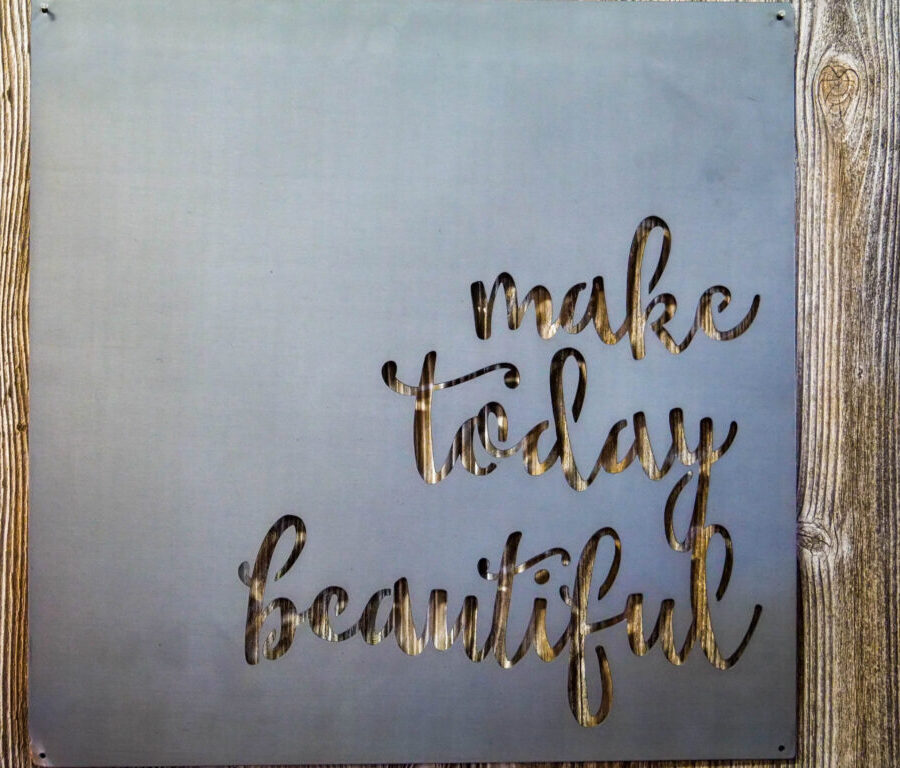 make
today
beautiful